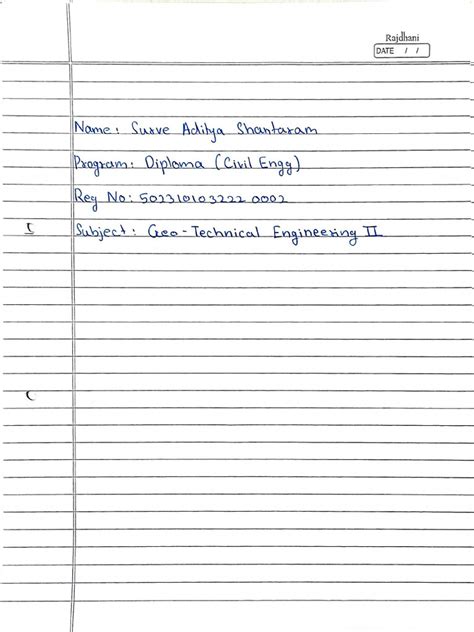 Rajdhani
DATE / /
Name: Surve Aditya Shantaram
Program: Diploma (Civil Engg)
Reg No: 502310103222 0002
Subject: Geo-Technical Engineering II